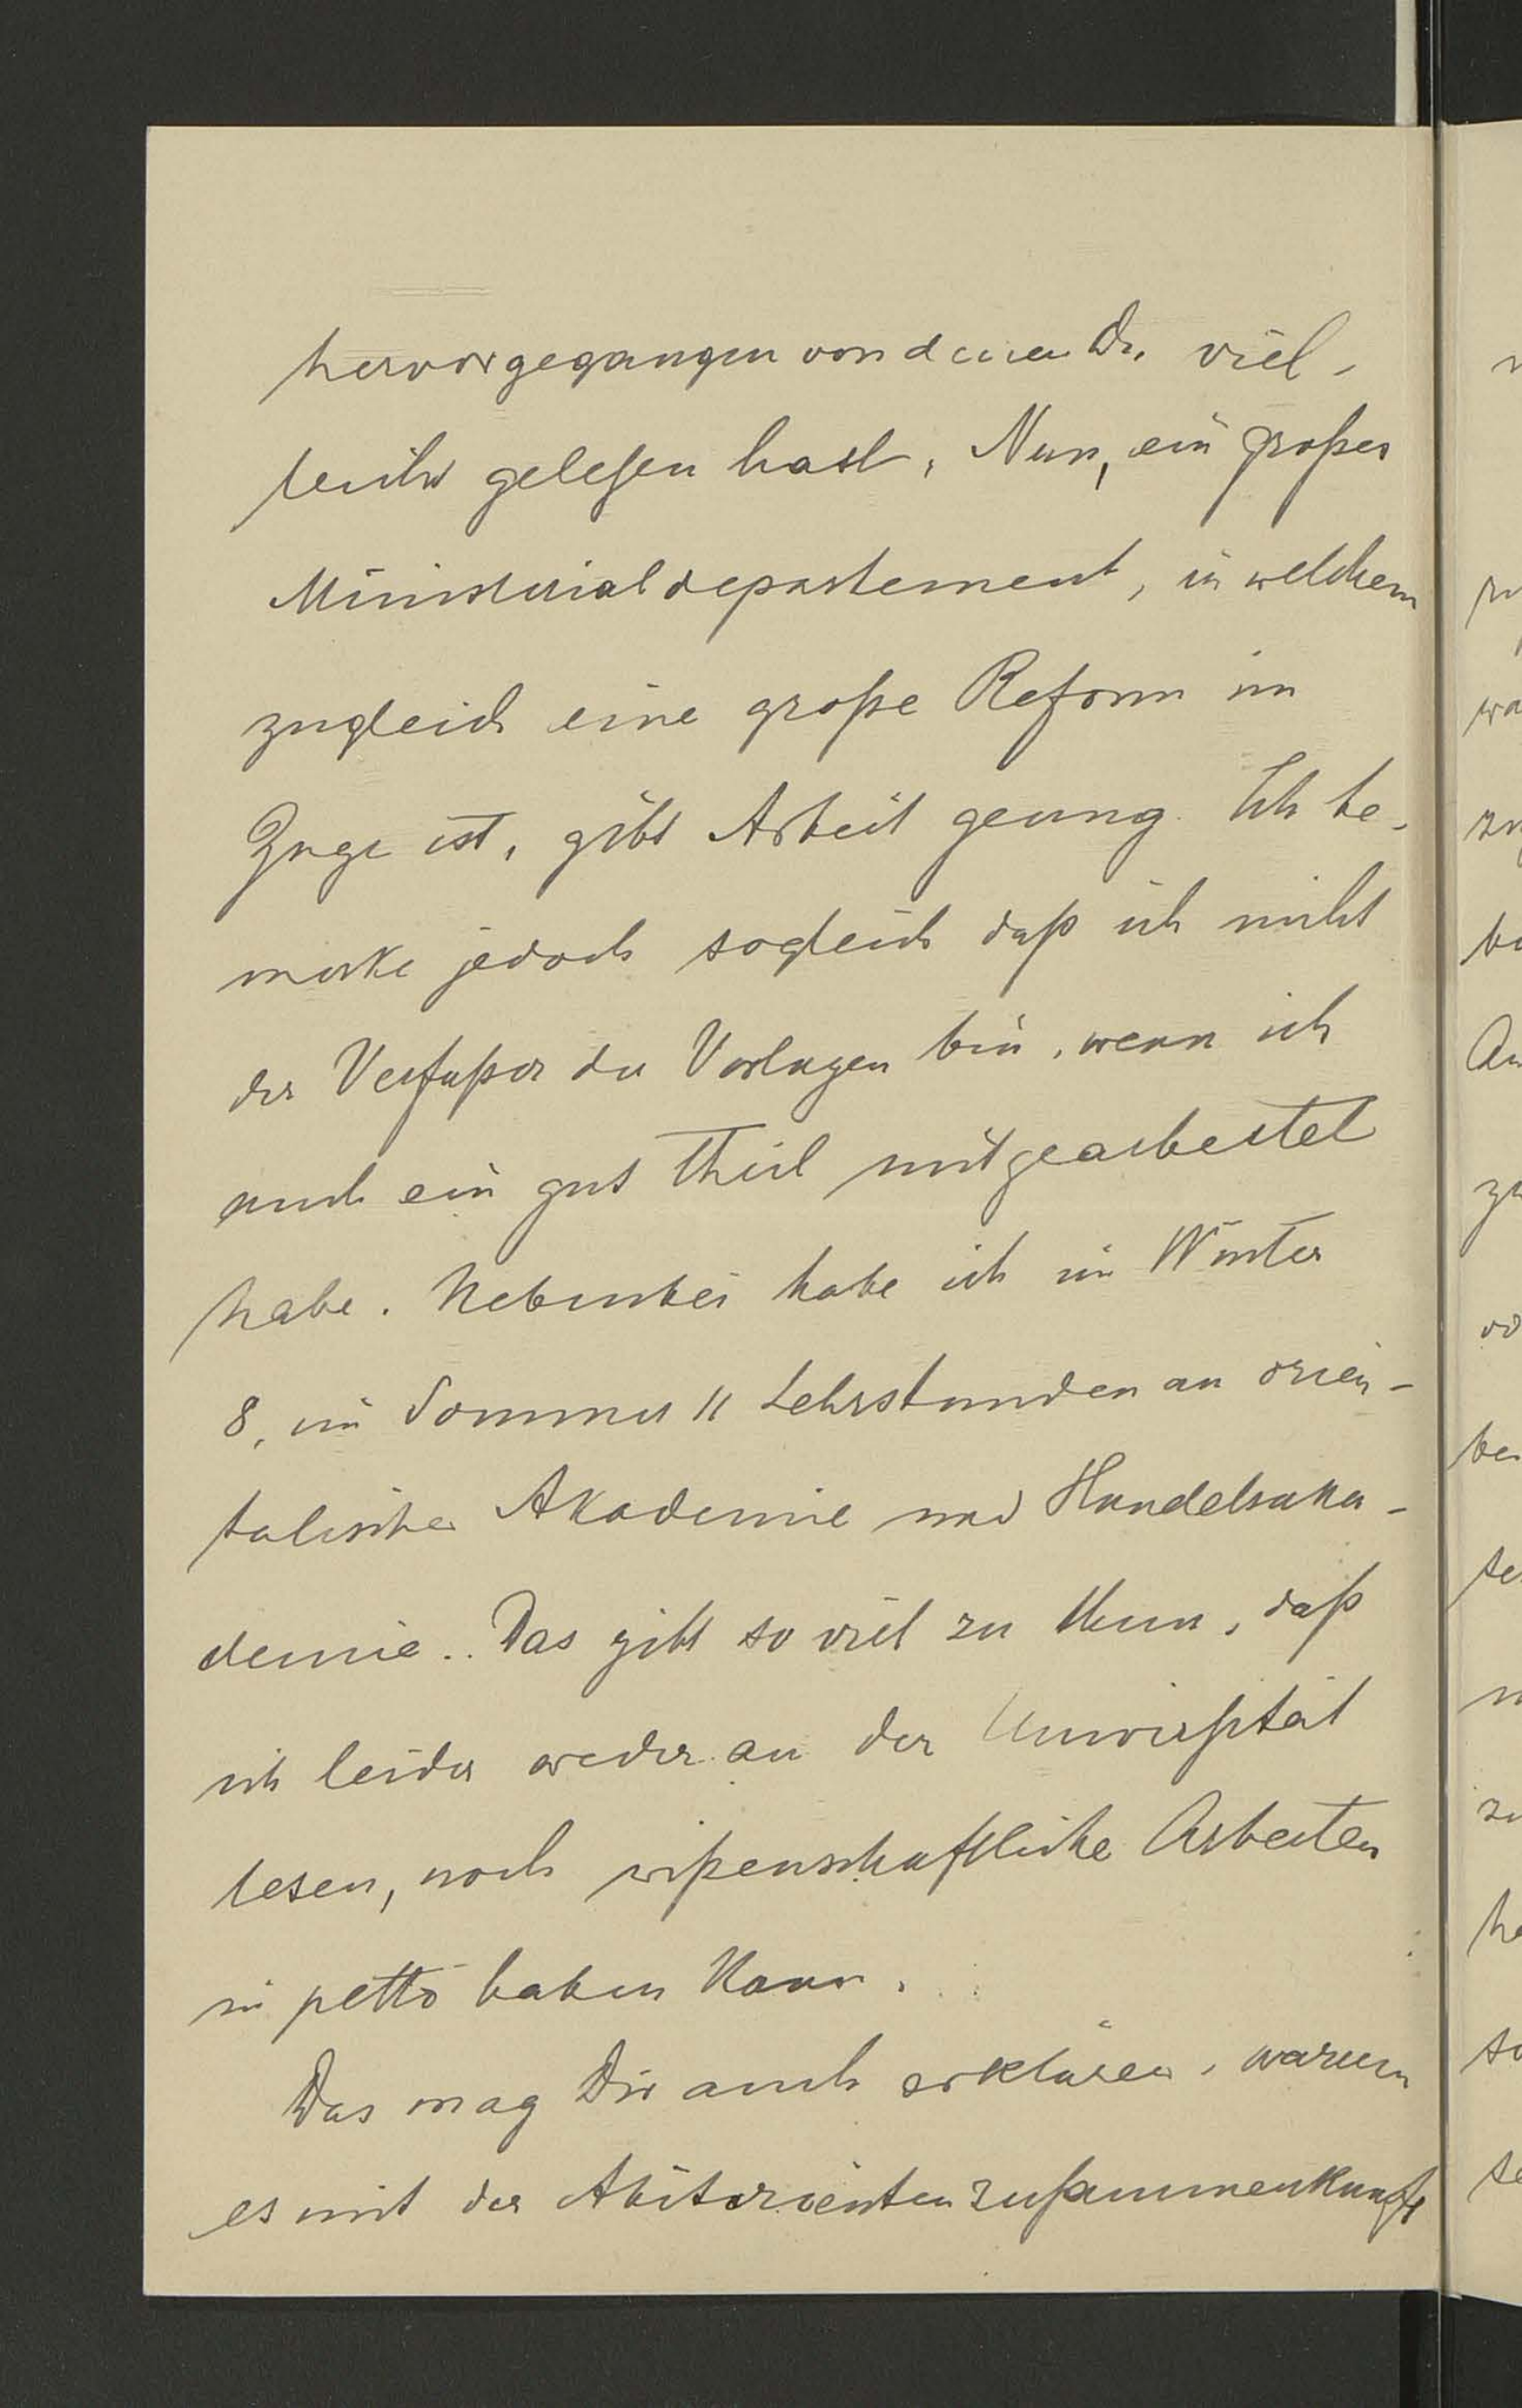 hervorgegangen von denen Du viel-
leicht gelesen hast. Nun, ein großes
Ministerialdepartement, in welchem
zugleich eine große Reform im
Zuge ist, gibt Arbeit genug. Ich be-
merke jedoch sogleich daß ich nicht
der Verfaßer der Vorlagen bin, wenn ich
auch ein gut Theil mitgearbeitet
habe. Nebenbei habe ich im Winter
8, im Sommer 11 Lehrstunden an orien-
talischer Akademie und Handelsaka-
demie.. Das gibt so viel zu thun, daß
ich leider weder an der Universität
lesen, noch wißenschaftliche Arbeiten
in petto haben kann.
Das mag Dir auch erklären, warum
es mit der Abiturientenzusammenkunft